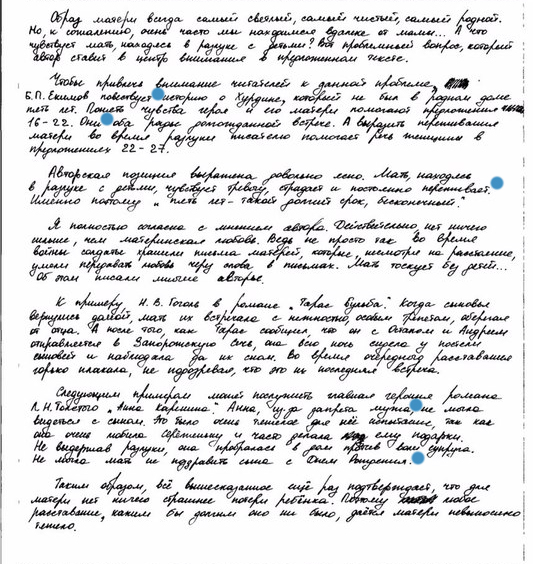 Образ матери всегда самый светлый, самый чистый, самый родной.
Но, к сожалению, очень часто мы находимся вдалеке от мамы... А что
чувствует мать, находясь в разлуке с детьми? Вот проблемный вопрос, который
автор ставит в центр внимания в предложенном тексте.
Чтобы привлечь внимание читателей к данной проблеме,
Б.П. Екимов повествует историю о Курдине, который не был в родном доме
пять лет. Понять чувства героя и его матери помогают предложения
16-22. Они оба рады долгожданной встрече. А выразить переживания
матери во время разлуки писателю помогает речь женщины в
предложениях 22-27.
Авторская позиция выражена довольно ясно. Мать, находясь
в разлуке с детьми, чувствует тревогу, страдает и постоянно переживает.
Именно поэтому „пять лет - такой долгий срок, бесконечный."
Я полностью согласна с мнением автора. Действительно, нет ничего
сильнее, чем материнская любовь. Ведь не просто так во время
войны солдаты хранили письма матерей, которые, несмотря на расстояние,
умели передавать любовь через слова в письмах. Мать тоскует без детей...
Об этом писали многие авторы.
К примеру Н.В. Гоголь в романе „Тарас Бульба". Когда сыновья
вернулись домой, мать их встречала с нежностью, особым трепетом, оберегая
от отца. А после того, как Тарас сообщил, что он с Остапом и Андрием
отправляется в Запорожскую Сечь, она всю ночь сидела у постели
сыновей и наблюдала за их сном. Во время очередного расставания
горько плакала, не подозревая, что это их последняя встреча.
Следующим примером может послужить главная героиня романа
Л.Н.Толстого „Анна Каренина". Анна, из-за запрета мужа не могла
видеться с сыном. Это было очень тяжелое для неё испытание, так как
она очень любила Серёженьку и часто делала ему подарки.
Не выдержав разлуки, она пробралась в дом против воли супруга.
Не могла мать не поздравить сына с Днем Рождения.
Таким образом, всё вышесказанное ещё раз подтверждает, что для
матери нет ничего страшнее потери ребёнка. Поэтому любое
расставание, каким бы долгим оно ни было, даётся матери невыносимо
тяжело.